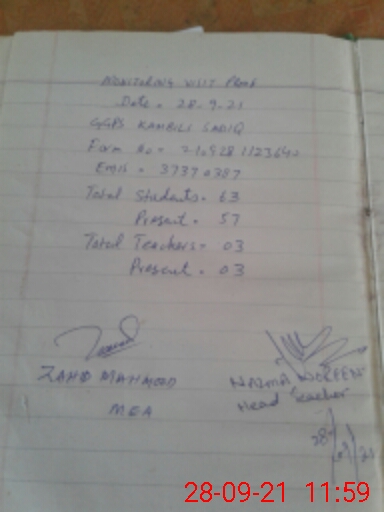 MONITORING VISIT PROOF
Date = 28-9-21
GGPS KAHBILI SADIQ
Form No = 21,928 1123640
Emis = 37370387
Total Students = 63
Present = 57
Total Teachers = 03
Present = 03
ZAHID MAHMOOD
MEA
NAJMA NOREEN
Head Teacher
28
21
28-09-21 11:59